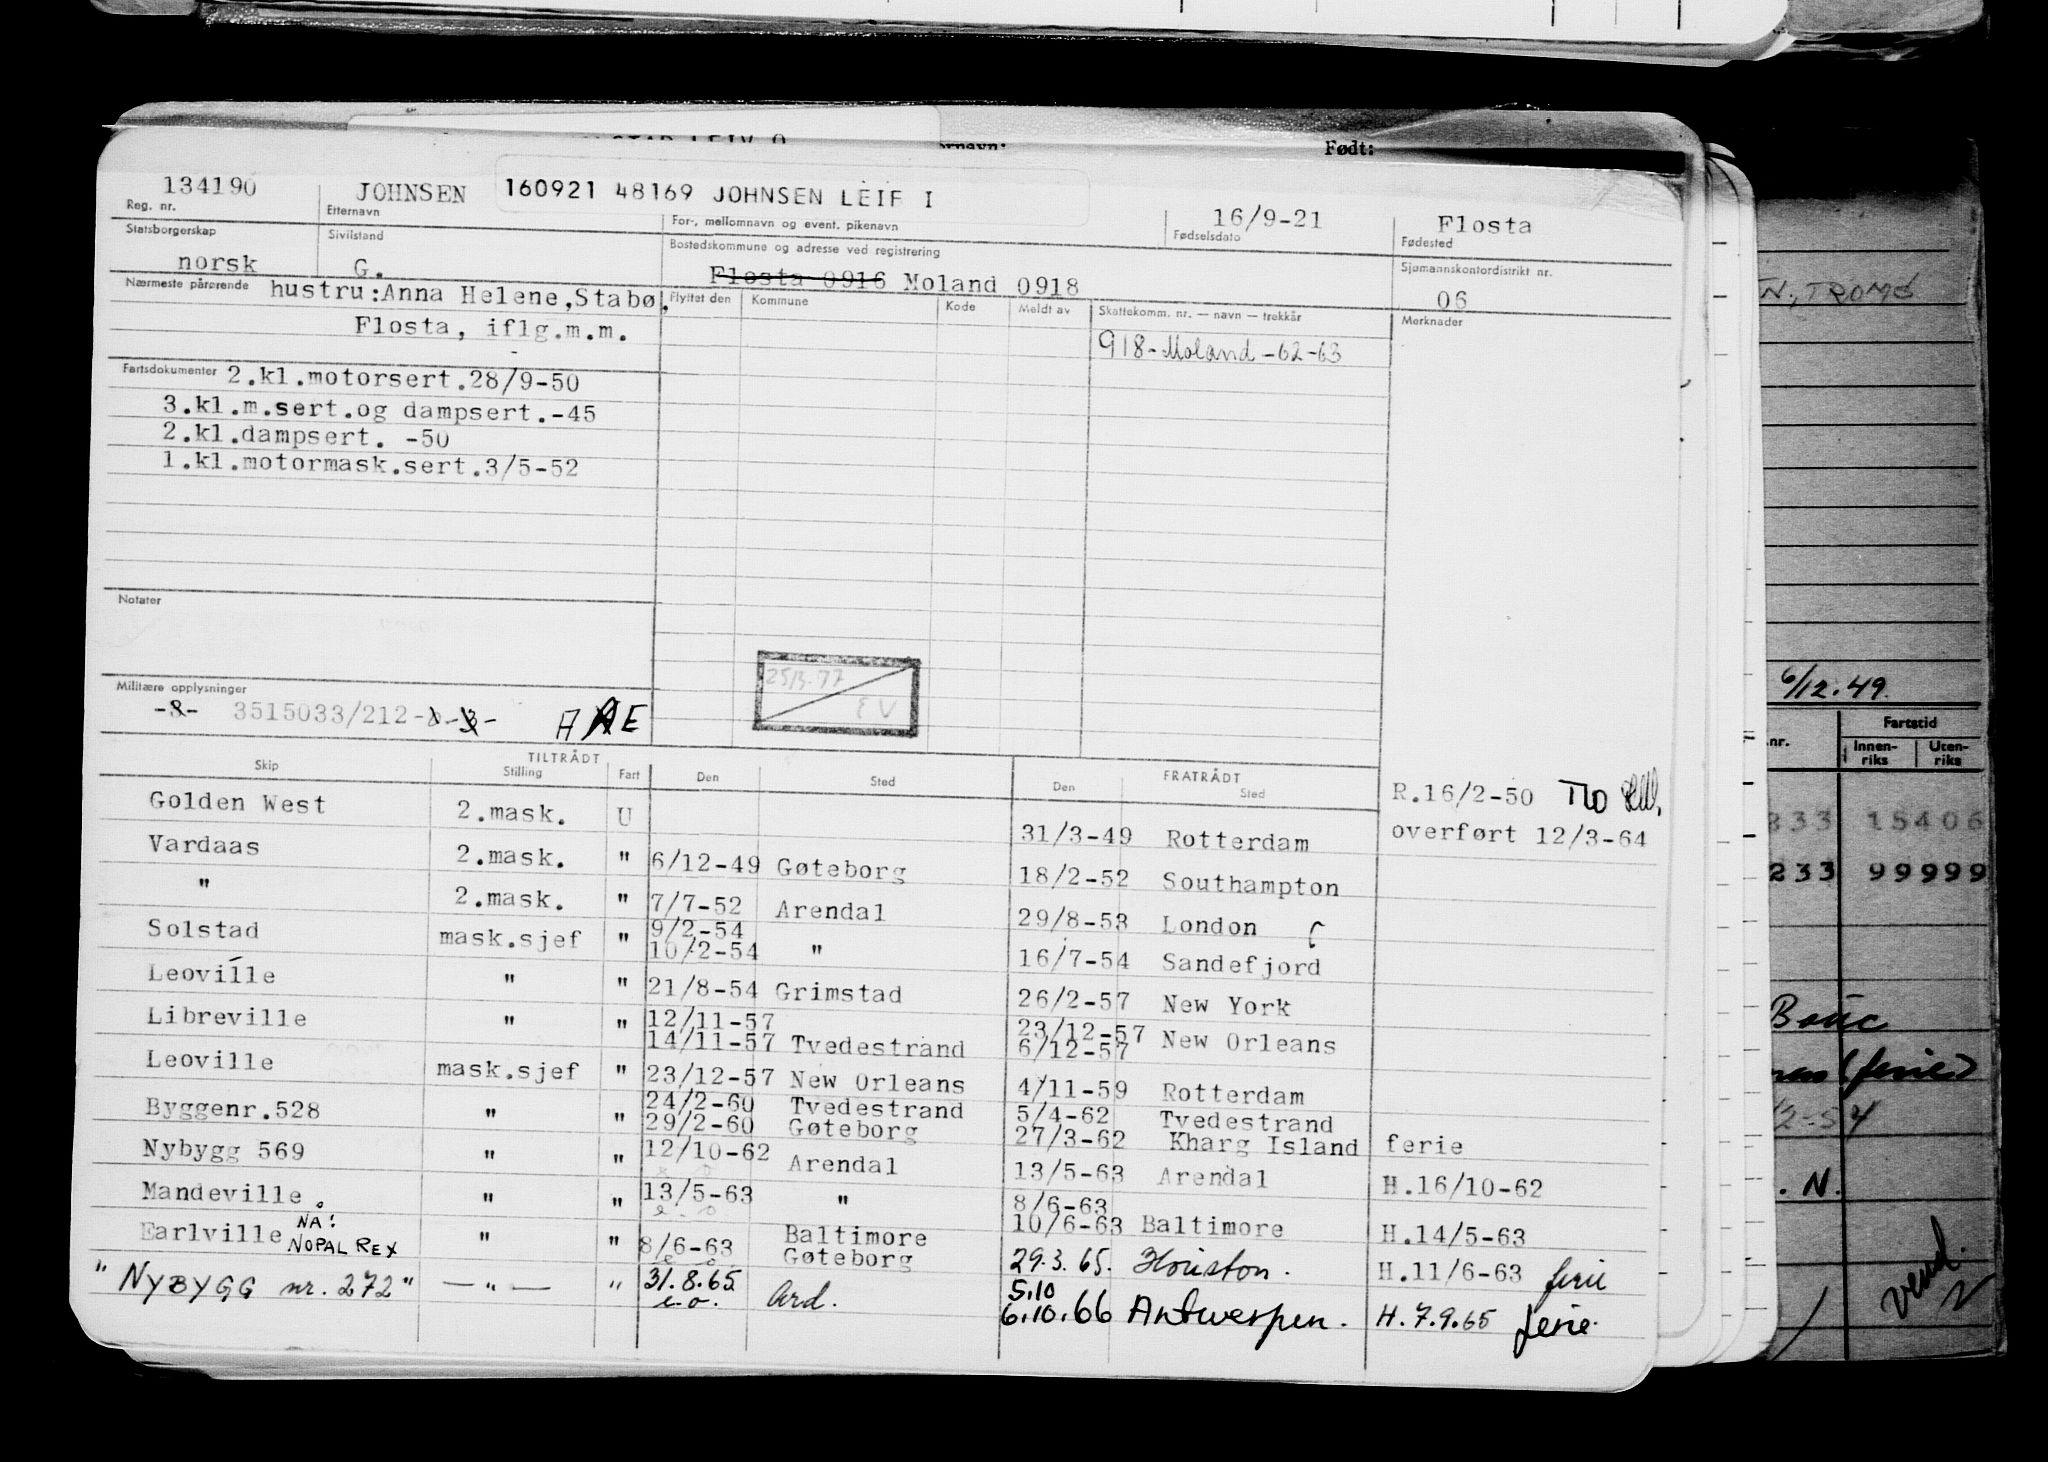 Født:
134190 JOHNSEN 160921 48169 JOHNSEN LEIF I 16/9-21 Flosta
Reg. nr. Etternavn For-, mellomnavn og event. pikenavn Fødselsdato Fødested
Statsborgerskap Sivilstand Bostedskommune og adresse ved registrering Sjømannskontordistrikt nr.
norsk G. Flosta 0916 Moland 0918 06
Nærmeste pårørende hustru:Anna Helene,Stabø, Flyttet den Kommune Kode Meldt av Skattekomm. nr. — navn — trekkår Merknader
Flosta, iflg.m.m. 918-Moland-62-63
Fartsdokumenter 2.kl.motorsert.28/9-50
3.kl.m.sert.og dampsert.-45
2.kl.dampsert. -50
1.kl.motormask.sert.3/5-52
Notater
25/3-77
EV
Militære opplysninger
-8- 3515033/212
Skip TILTRÅDT Stilling Fart Den Sted FRATRÅDT Den Sted
R.16/2-50
overført 12/3-64
Golden West 2.mask. U 31/3-49 Rotterdam
Vardaas 2.mask. " 6/12-49 Gøteborg 18/2-52 Southampton
" 2.mask. " 7/7-52 Arendal 29/8-53 London
Solstad mask.sjef " 9/2-54 10/2-54 " 16/7-54 Sandefjord
Leoville " " 21/8-54 Grimstad 26/2-57 New York
Libreville " " 12/11-57 14/11-57 Tvedestrand 23/12-57 6/12-57 New Orleans
Leoville mask.sjef " 23/12-57 New Orleans 4/11-59 Rotterdam
Byggenr.528 " " 24/2-60 Tvedestrand 5/4-62 Tvedestrand
29/2-60 Gøteborg 27/3-62 Kharg Island ferie
Nybygg 569 " " 12/10-62 Arendal 13/5-63 Arendal H.16/10-62
Mandeville " " 13/5-63 " 8/6-63 10/6-63 Baltimore H.14/5-63
Earlville NÅ: NOPAL REX " " 8/6-63 Baltimore Gøteborg 29.3.65. Houston. H.11/6-63 ferie
"NYBYGG nr. 272" — " — " 31.8.65 e.o. Ard. 5.10 6.10.66 Antwerpen. H.7.9.65 ferie.
N., TROMØ
6/12.49.
nr. Fartstid
Innen-riks Uten-riks
833 15406
233 99999
Bouc
(ferie)
2-54
. N.
vend.